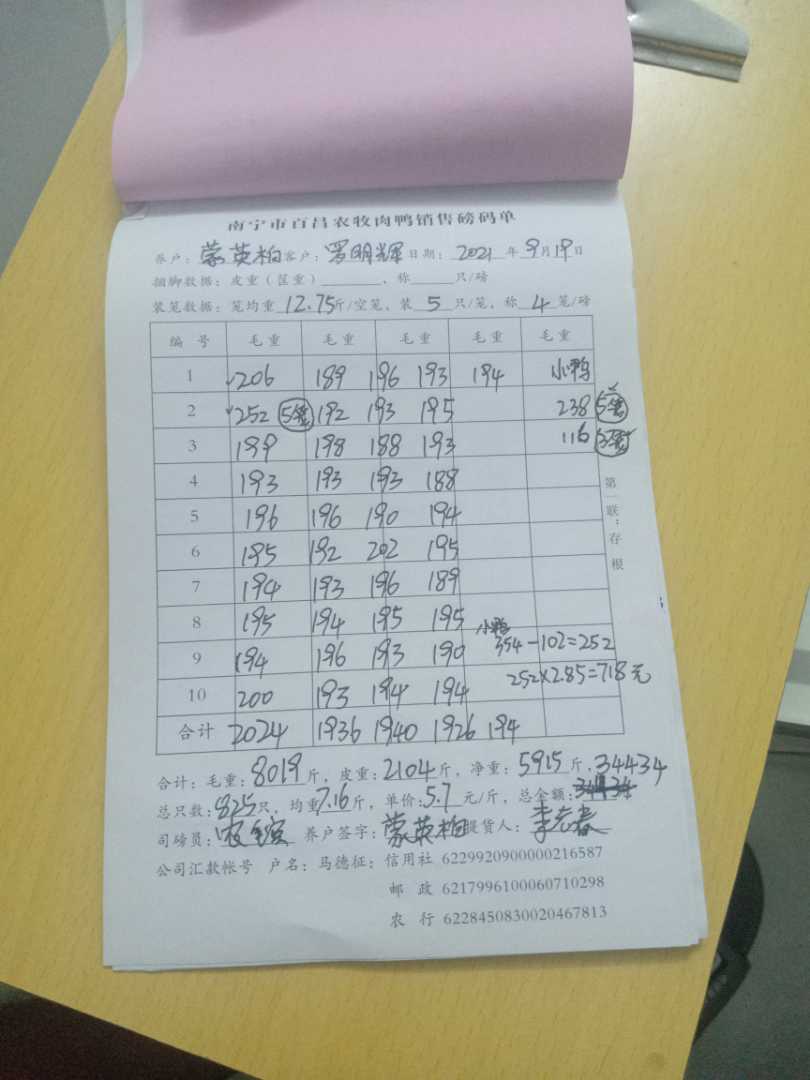 南宁市百昌农牧肉鸭销售磅码单
养户：蒙英柏 客户：罗明辉 日期：2021年9月19日
捆脚数据：皮重（筐重）________、称______只/磅
装笼数据：笼均重12.75斤/空笼，装5只/笼，称4笼/磅
编号 毛重 毛重 毛重 毛重 毛重
1 206 189 196 193 194 小鸭
2 252 5笼 192 193 195 238 5笼
3 199 198 188 193 116
4 193 193 193 188
5 196 196 190 194
6 195 192 202 195
7 194 193 196 189
8 195 194 195 195 小鸭
9 194 196 193 190 354-102=252
10 200 193 194 194 252×2.85=718元
合计 2024 1936 1940 1926 194
第一联：存根
合计：毛重：8019斤，皮重：2104斤，净重：5915斤，34434
总只数：825只，均重7.16斤，单价：5.7元/斤，总金额：
司磅员： 养户签字：蒙英柏 提货人：
公司汇款帐号 户名：马德征：信用社 6229920900000216587
邮 政 6217996100060710298
农 行 6228450830020467813